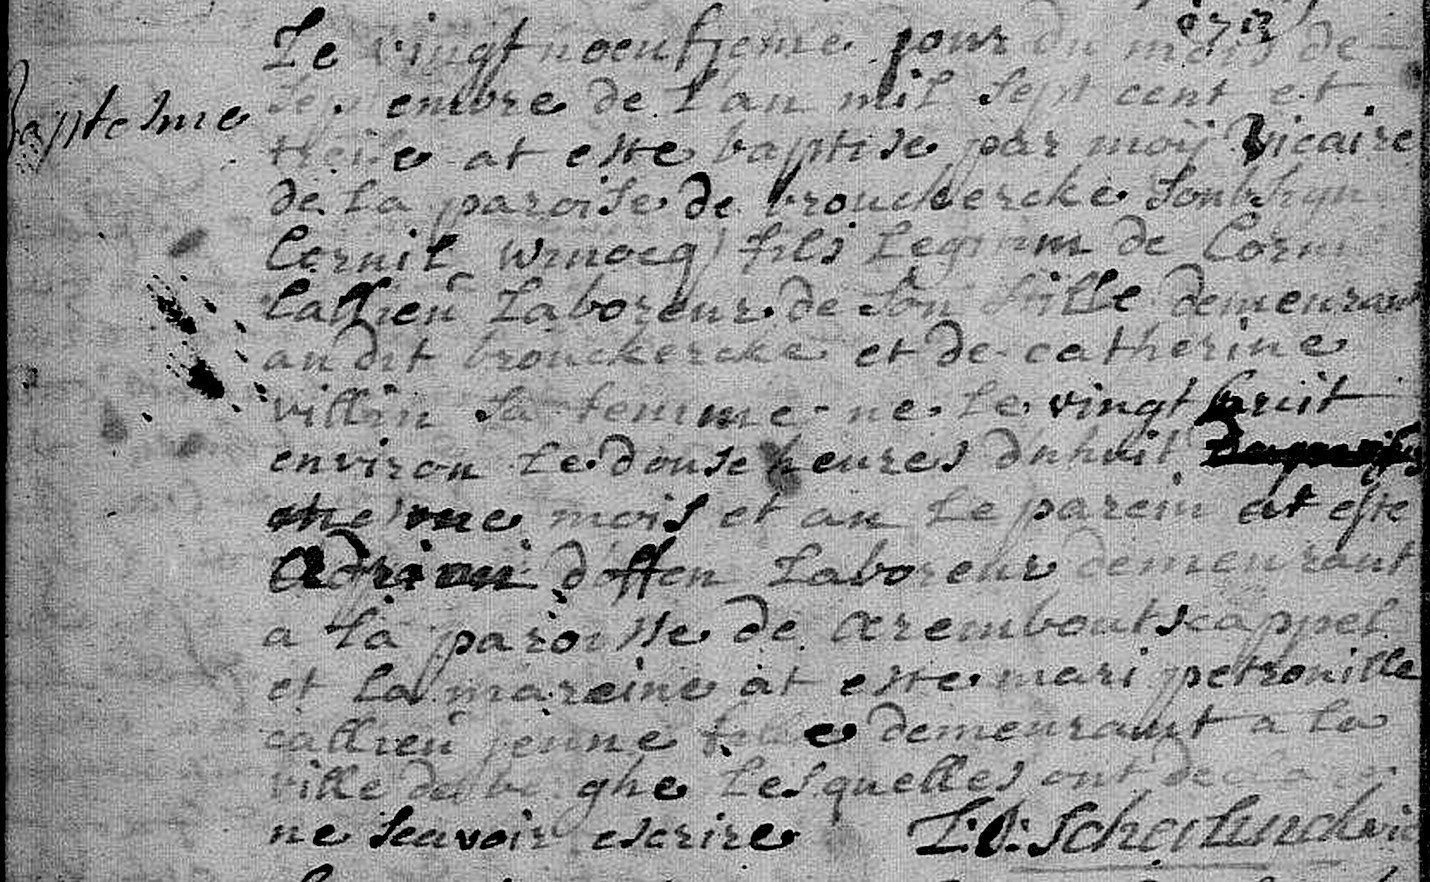 1713
Le vingt noeufieme jour du mois de
Baptesme
Septembre de L'an mil sept cent et
treise at este baptise par moij Vicaire
de La paroise de brouckercke soubsign
Cornil winocq fils Legitim de Corni
Callieu Laboreur de son stille demeurant
au dit brouckercke et de catherine
villin sa femme ne Le vingt huit
environ Le douse heures du huit
mesme mois et an Le parein at este
Adrian doffen Laboreur demeurant
a La paroisse de Aremboutscappel
et La mareine at este mari petronille
callieu jeune fille demeurant a La
ville de berghe Lesquelles ont declare
ne scavoir escrire